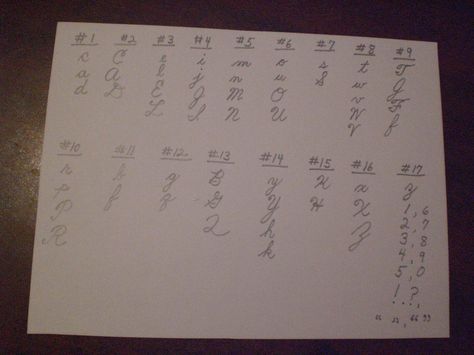 #1 #2 #3 #4 #5 #6 #7 #8 #9
c C e i m o s t T
a A l j n u S w
d D E J M O v F
L N U W f
V
#10 #11 #12 #13 #14 #15 #16 #17
r b g B y K x z
p f q G Y H X 1, 6
P Q h Z 2, 7
R k 3, 8
4, 9
5, 0
! . ? ,
“ ”, “ ”